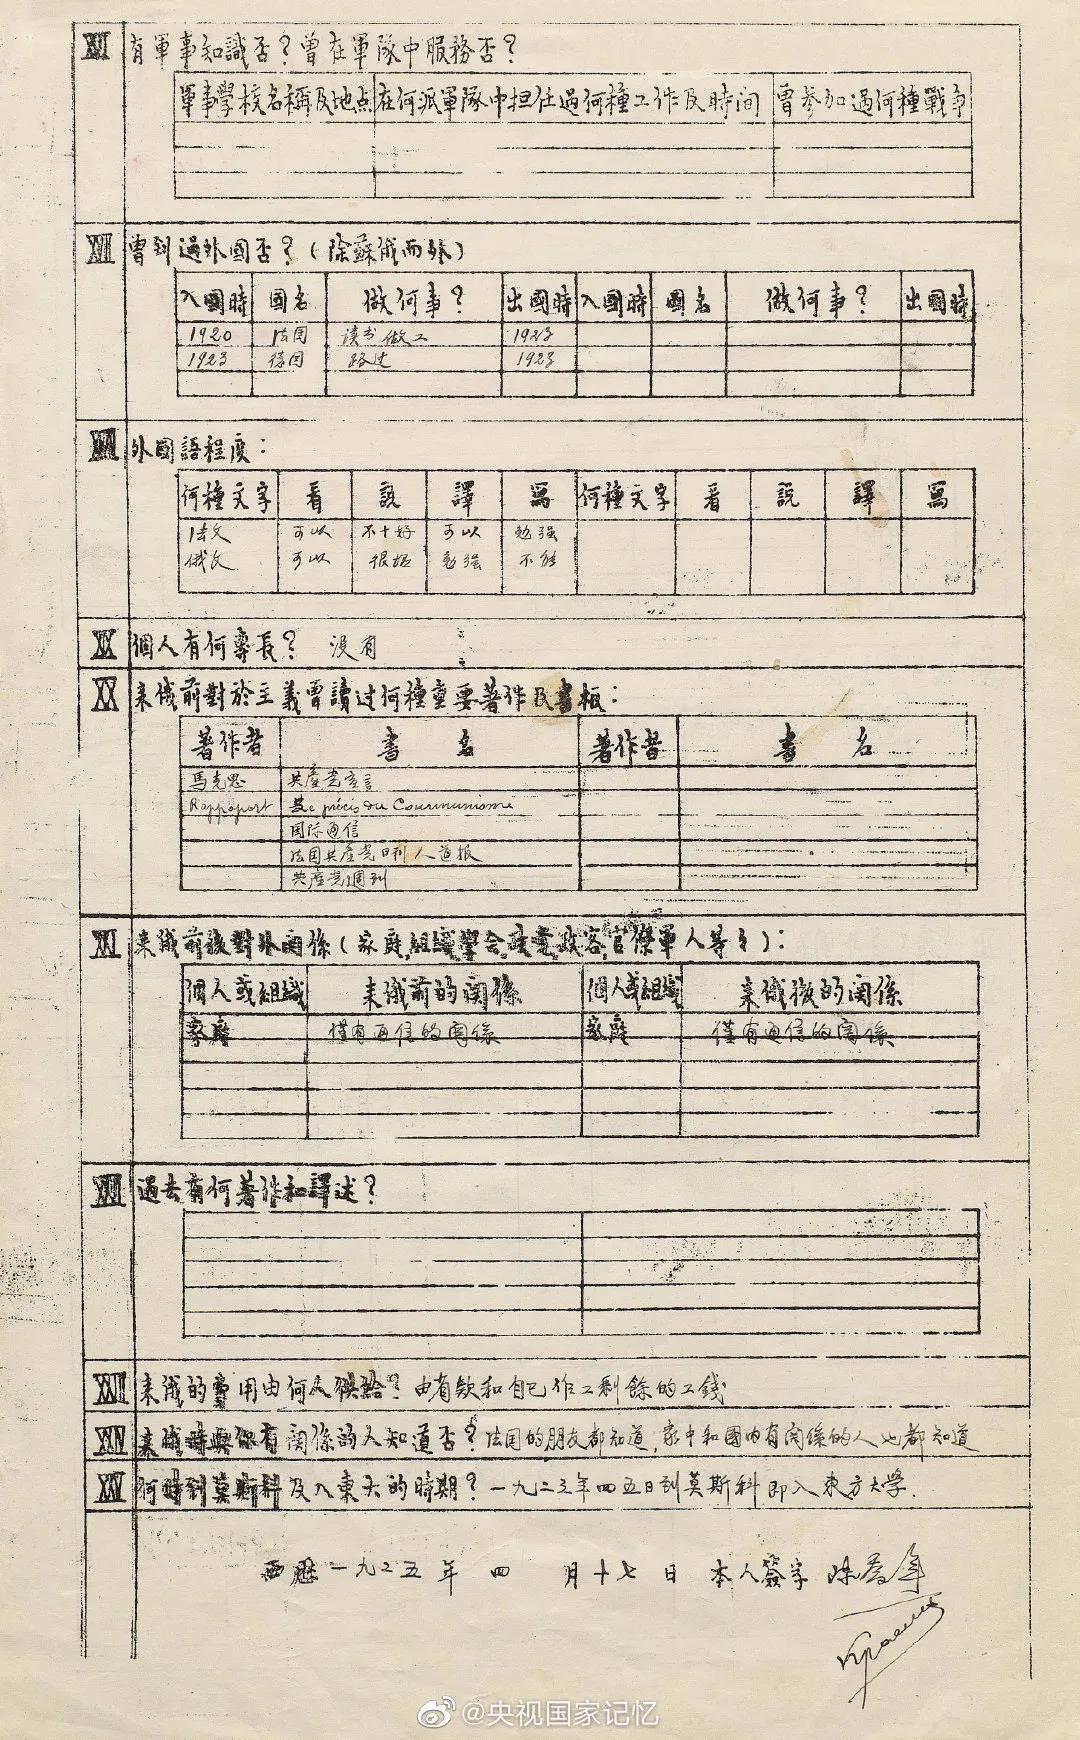 XVI 有軍事知識否？曾在軍隊中服務否？
軍事學校名稱及地点 在何派軍隊中担任過何種工作及時间 曾參加過何種戰爭
XVII 曾到過外國否？(除蘇俄而外)
入國時 國名 做何事？ 出國時 入國時 國名 做何事？ 出國時
1920 法国 读书做工 1923
1923 德国 路过 1923
XVIII 外國語程度：
何種文字 看 說 譯 寫 何種文字 看 説 譯 寫
法文 可以 不十好 可以 勉强
俄文 可以 勉强 不能
XIX 個人有何專長？ 没有
XX 来俄前對於主義曾讀过何種重要著作及書報：
著作者 書名 著作者 書名
馬克思 共産党宣言
Rappoport précis du Communisme
国际通信
法国共産党日刊人道报
共産党週刊
XXI 来俄前後對外関係(家庭,組織,學会,政党,政客,官僚軍人等々)：
個人或組織 来俄前的関係 個人或組織 来俄後的関係
家庭 僅有通信的関係 家庭 僅有通信的関係
XXII 過去有何著作和譯述？
XXIII 来俄的費用由何人供給？ 由有欵和自己作工剩餘的工錢
XXIV 来俄時與你有関係的人知道否？ 法国的朋友都知道,家中和國内有関係的人也都知道
XXV 何時到莫斯科及入東大的時期？ 一九二三年四五日到莫斯科即入東方大学.
西歷一九二五年 四 月十七日 本人簽字 陈喬年
@央视国家记忆